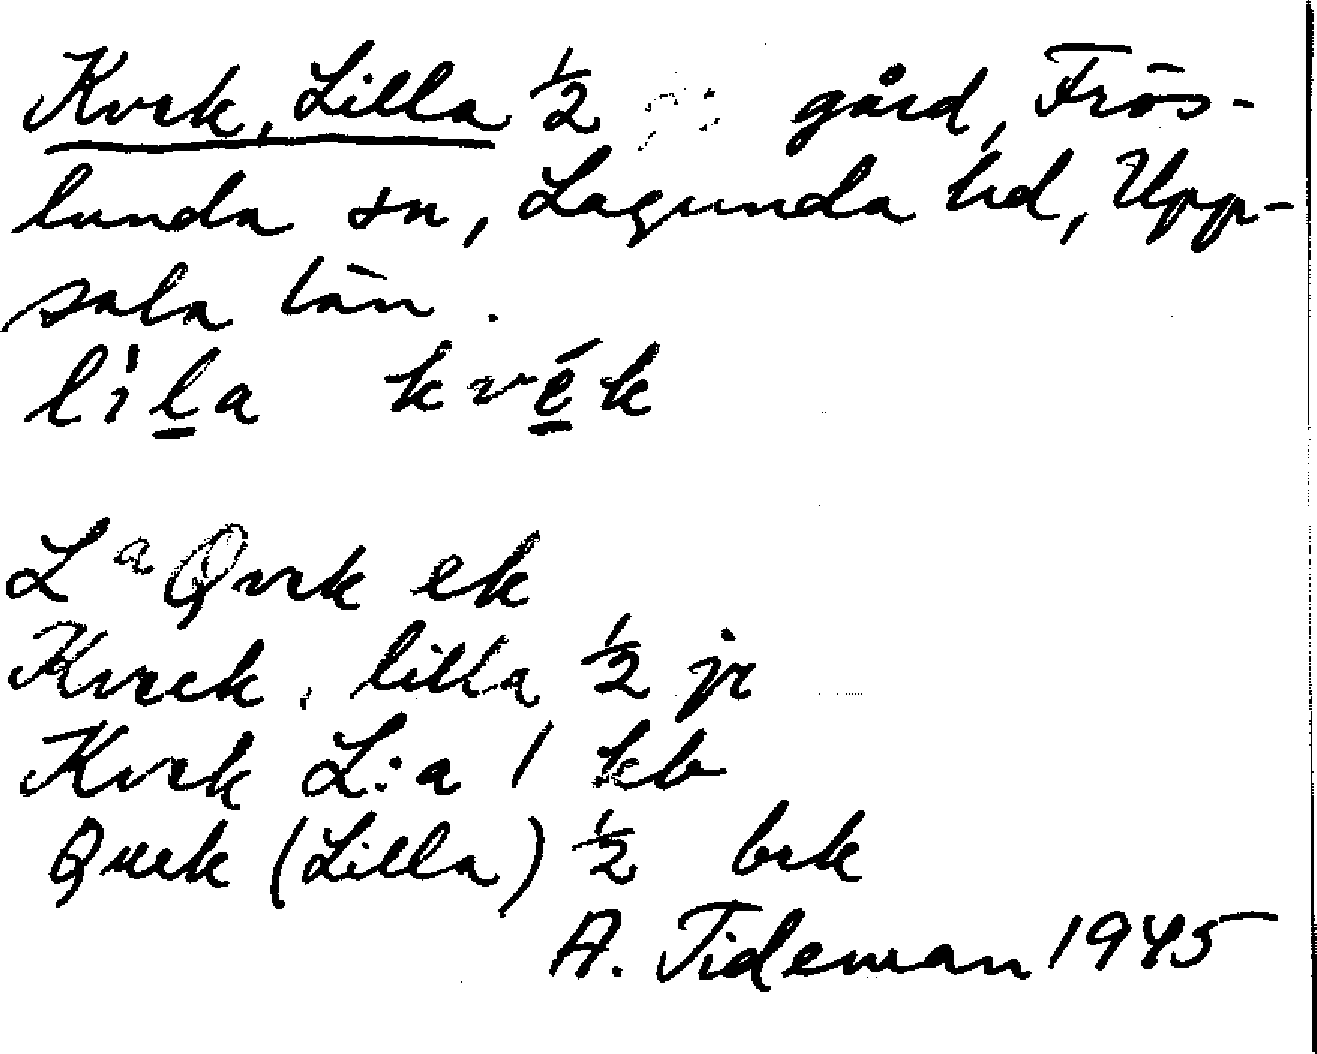 Kvek, Lilla ½ gård, Frös-
lunda sn, Lagunda hd, Upp-
sala län.
lìla kvék
Lª Qvek ek
Kveck, lilla ½ jr
Kvek L:a 1 kb
Quek (Lilla) ½ bek
A. Tideman 1945